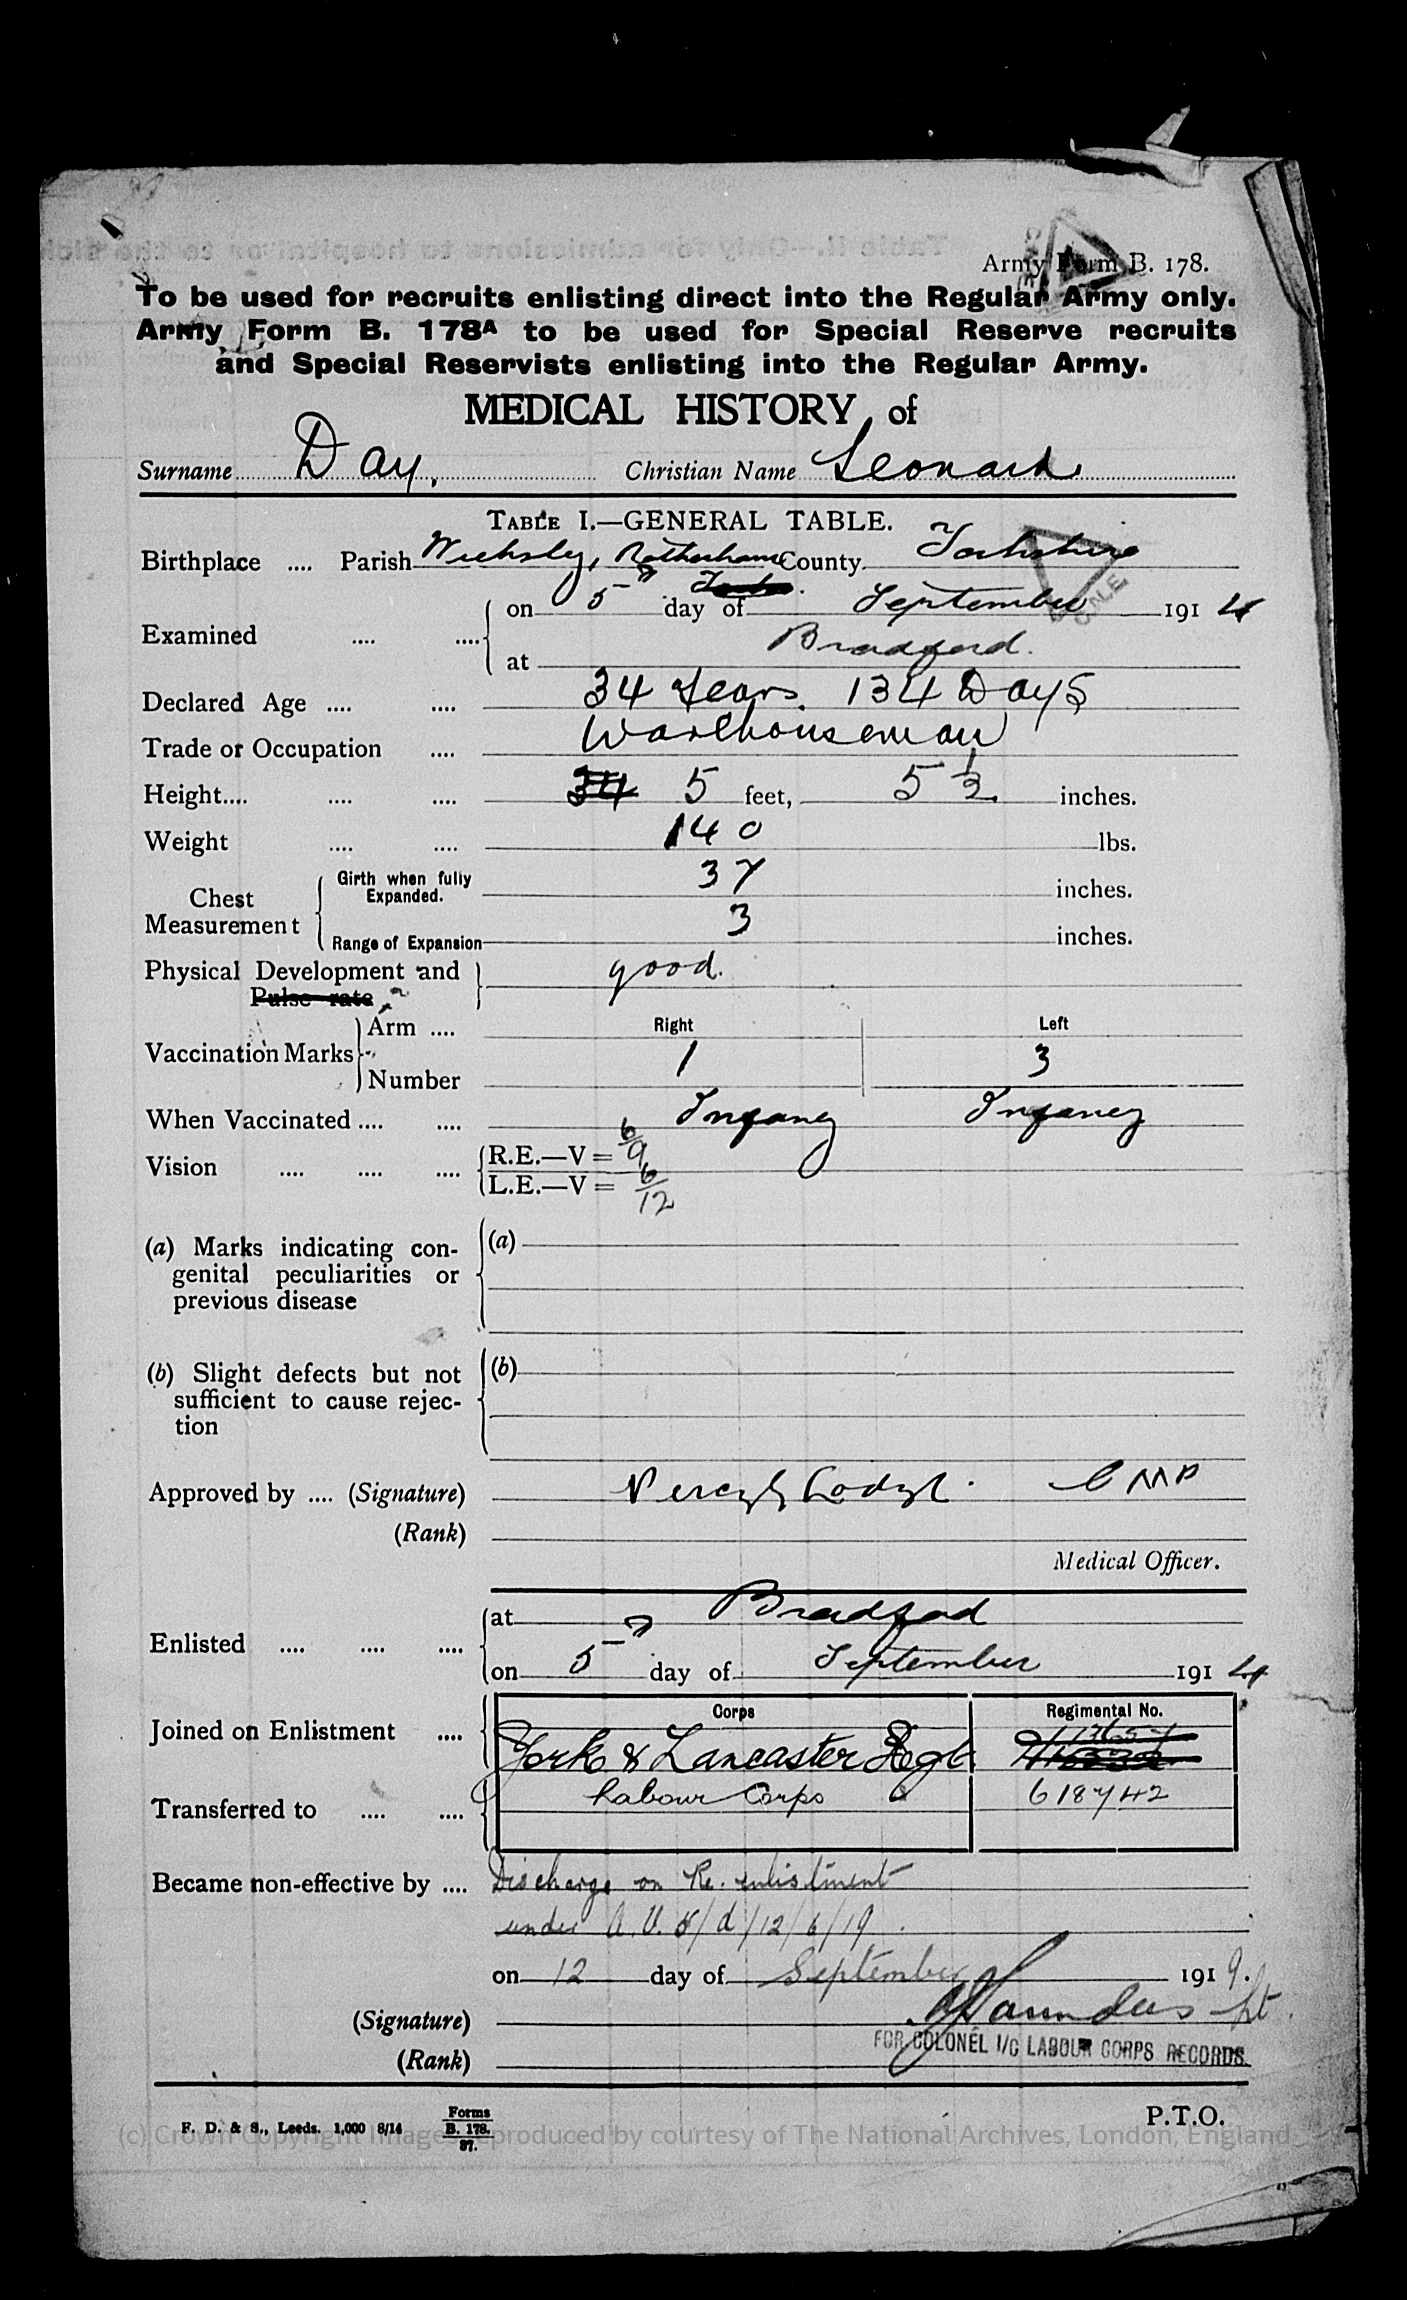 Army Form B. 178.
To be used for recruits enlisting direct into the Regular Army only.
Army Form B. 178A to be used for Special Reserve recruits
and Special Reservists enlisting into the Regular Army.
MEDICAL HISTORY of
Surname Day, Christian Name Leonard
TABLE I.—GENERAL TABLE.
Birthplace .... Parish Rotherham County Yorkshire
Examined .... .... on 5th day of September 1914
at Bradford.
Declared Age .... .... 34 Years 134 Days
Trade or Occupation .... Warehouseman
Height.... .... .... 34 5 feet, 5 1/2 inches.
Weight .... .... 140 lbs.
Chest Measurement
Girth when fully Expanded. 37 inches.
Range of Expansion 3 inches.
Physical Development and good.
Pulse rate
Vaccination Marks
Arm .... Right Left
Number 1 3
When Vaccinated .... .... Infancy Infancy
Vision .... .... .... R.E.—V = 6/9
L.E.—V = 6/12
(a) Marks indicating con- (a)
genital peculiarities or
previous disease
(b) Slight defects but not (b)
sufficient to cause rejec-
tion
Approved by .... (Signature) Percy
(Rank)
Medical Officer.
Enlisted .... .... .... at Bradford
on 5th day of September 1914
Corps Regimental No.
Joined on Enlistment .... York & Lancaster Regt
Transferred to .... .... Labour Corps 618742
Became non-effective by .... Discharge on Re.enlistment
under A.O. /d/12/6/19.
on 12 day of September 1919.
(Signature) Saunders Lt
FOR COLONEL I/C LABOUR CORPS RECORDS.
(Rank)
F. D. & S., Leeds. 1,000 8/14 Forms B. 178. 37.
P.T.O.
(c) Crown Copyright Images reproduced by courtesy of The National Archives, London, England